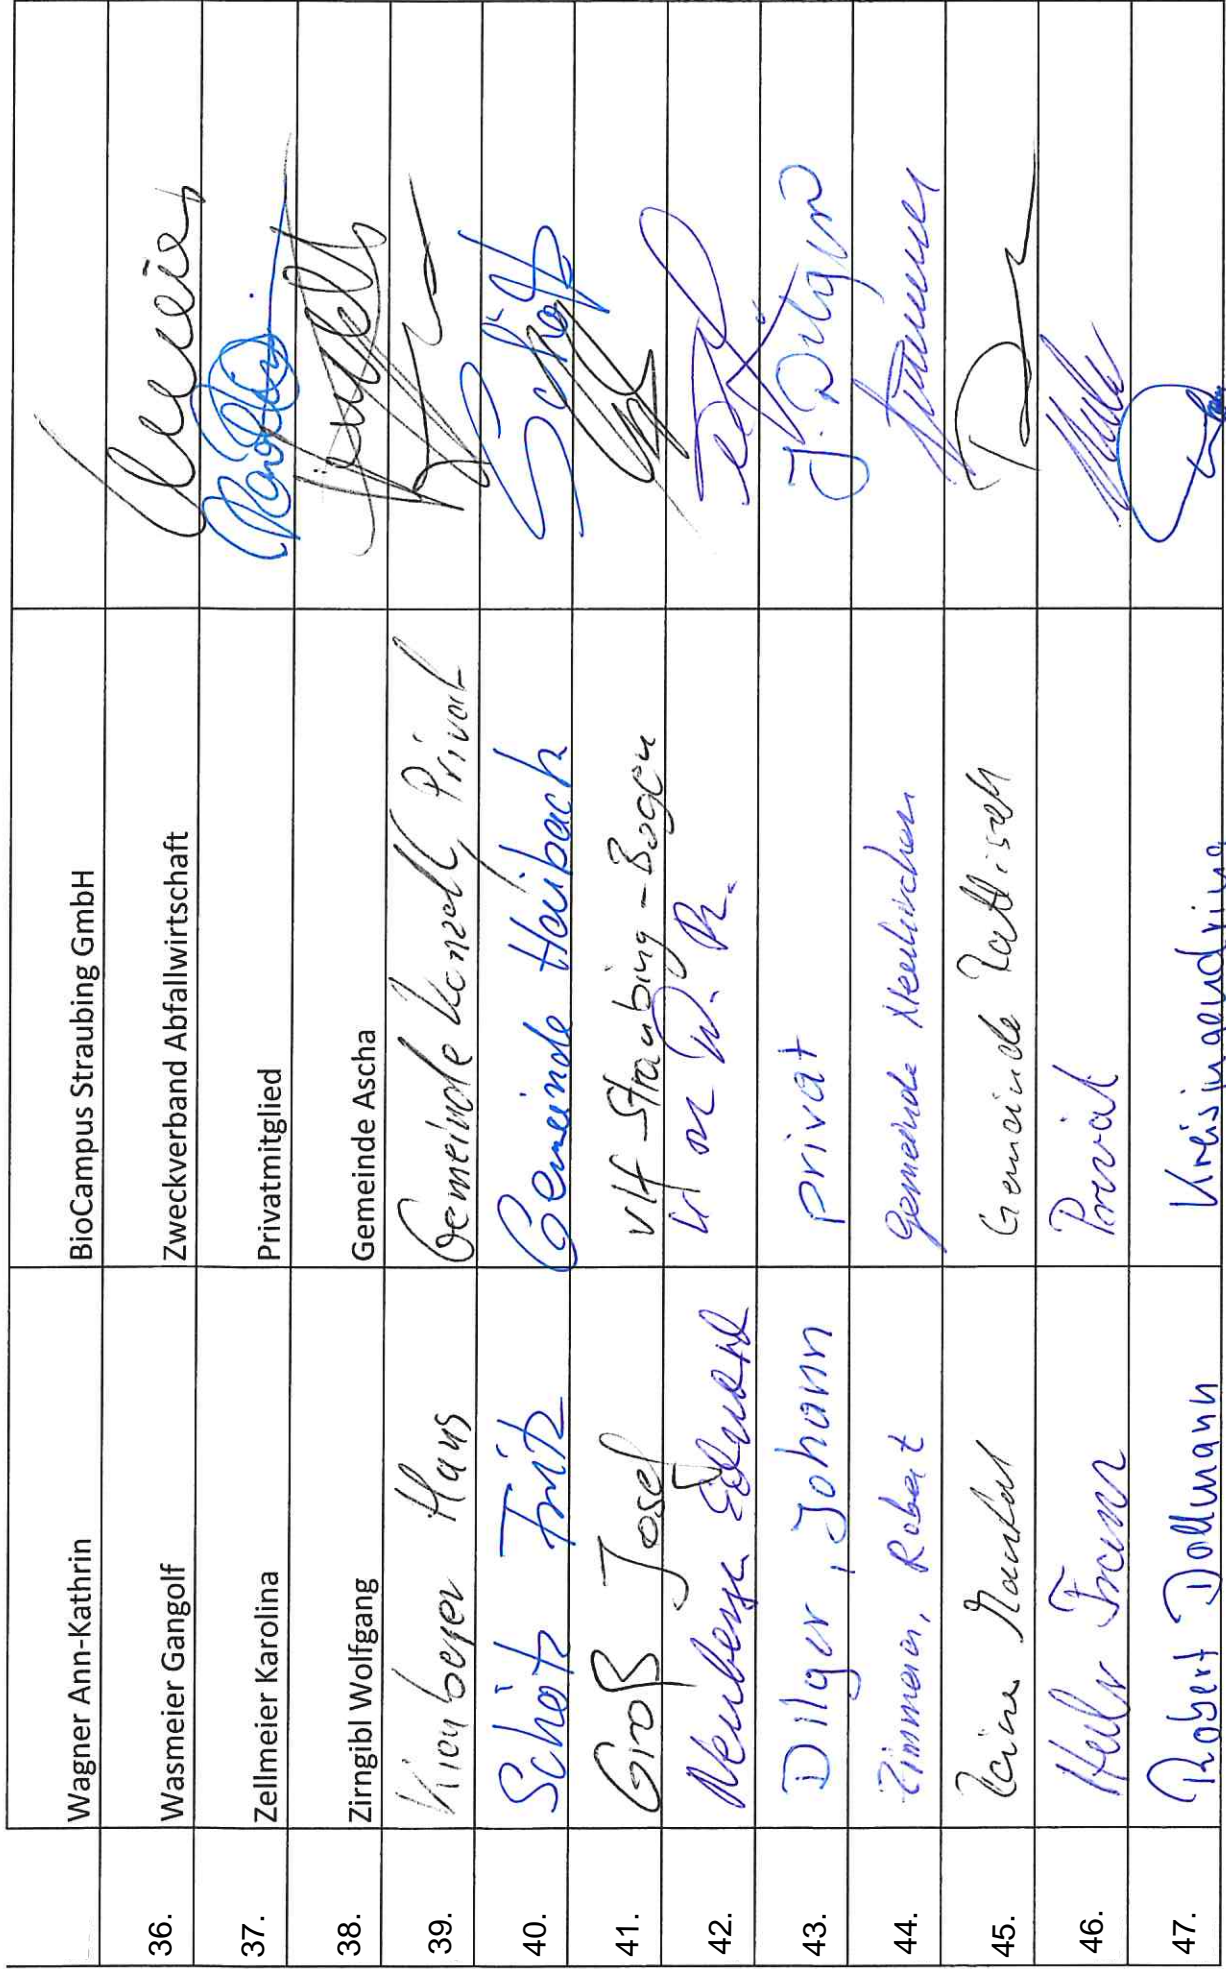 Wagner Ann-Kathrin BioCampus Straubing GmbH
36. Wasmeier Gangolf Zweckverband Abfallwirtschaft
37. Zellmeier Karolina Privatmitglied
38. Zirngibl Wolfgang Gemeinde Ascha
39. Kienberger Hans Gemeinde Konzell, Privat
40. Schötz Fritz Gemeinde Haibach Schötz
41. Groß Josef vlf Straubing-Bogen
42. Neuberger Edmund
43. Dilger, Johann privat J. Dilger
44. Robert Gemeinde Neukirchen
45. Gemeinde
46. Franz Privat
47. Robert Dollmann Kreisjugendring